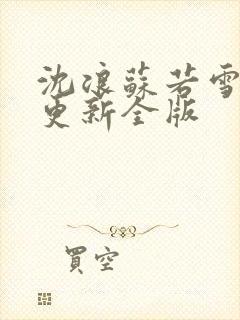 沈浪蘇若雪
更新全版
買空